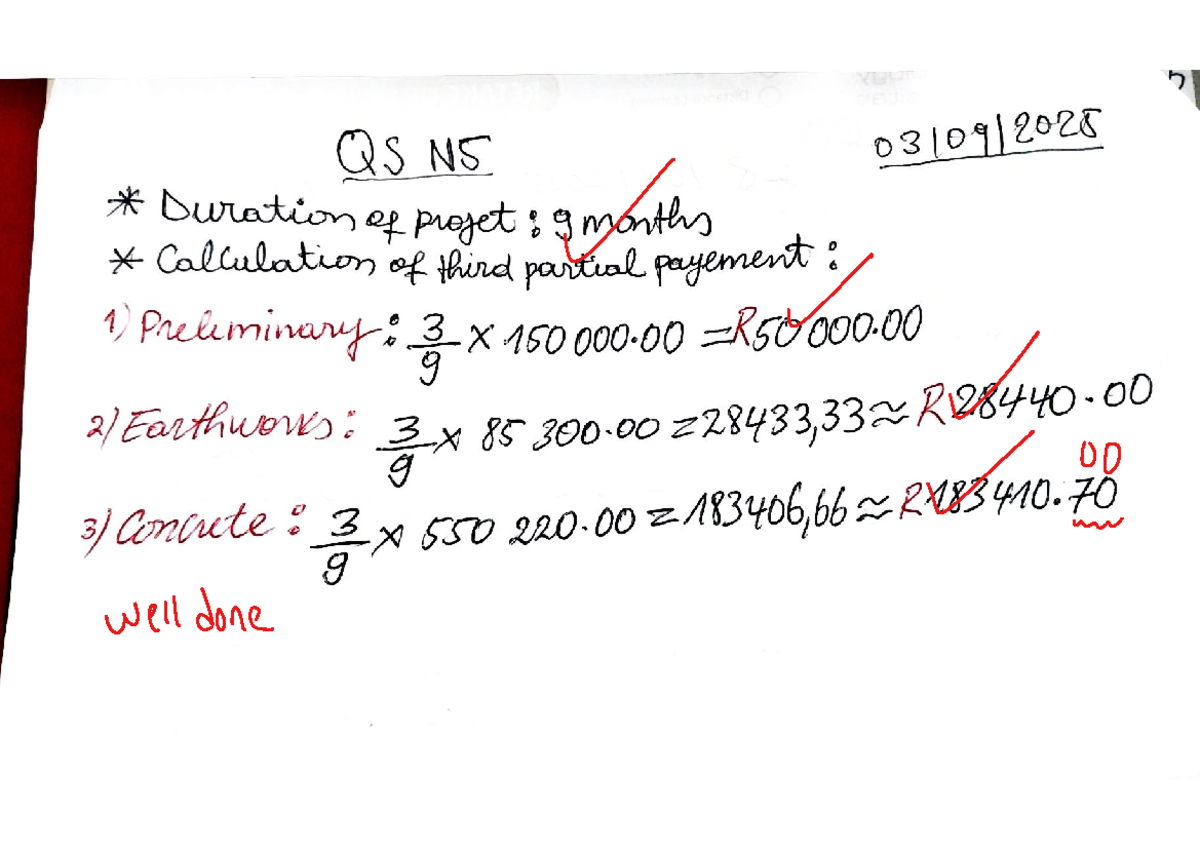 QS N5
03/09/2025
* Duration of projet : 9 months
* Calculation of third partial payement :
1) Preliminary : 3/9 × 150 000.00 = R50 000.00
2) Earthworks : 3/9 × 85 300.00 = 28433,33 ≈ R 28440.00
00
3) Concrete : 3/9 × 550 220.00 = 183406,66 ≈ R 183410.70
well done